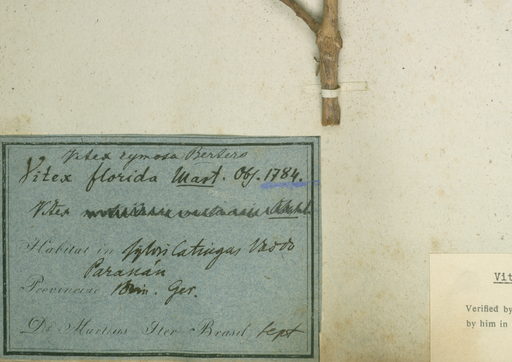 Vitex cymosa Bertero
Vitex florida Mart. Obs. 1784.
Vitex
Habitat in sylvis Catingas Vao do
Paranán
Provinciae Min. Ger.
De Martius Iter Brasil Sept
Vit
Verified by
by him in